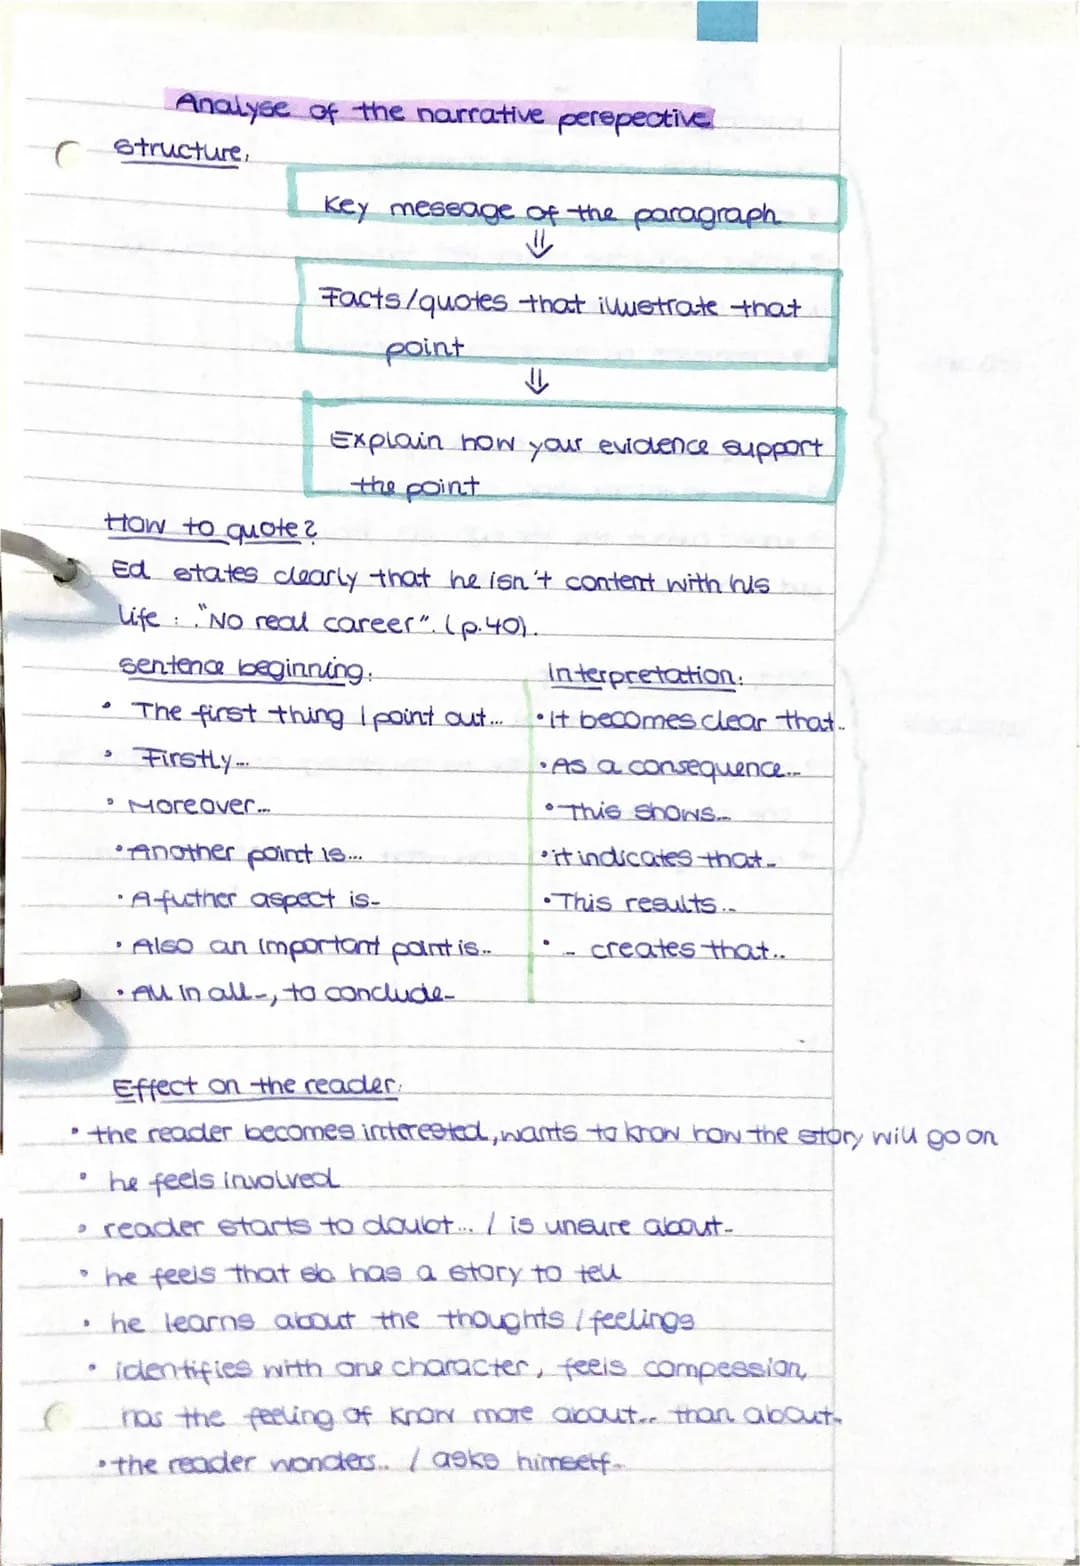 Analyse of the narrative perspective
Structure:
Key message of the paragraph
⇓
Facts/quotes that illustrate that
point
⇓
Explain how your evidence support
the point
How to quote?
Ed states clearly that he isn't content with his
life : "No real career". (p.40).
sentence beginning:
• The first thing I point out...
• Firstly...
• Moreover...
• Another point is...
• A futher aspect is...
• Also an important point is...
• All in all..., to conclude...
Interpretation:
• it becomes clear that...
• As a consequence...
• This shows...
• it indicates that...
• This results...
• ... creates that...
Effect on the reader:
• the reader becomes interested, wants to know how the story will go on
• he feels involved
• reader starts to doubt... / is unsure about...
• he feels that sb has a story to tell
• he learns about the thoughts / feelings
• identifies with one character, feels compession,
has the feeling of know more about... than about...
• the reader wonders... / asks himself...